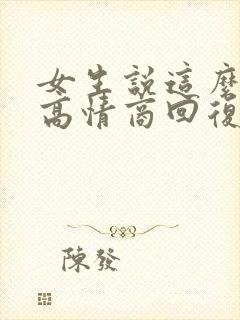 女生説這麼
高情商回復
陳發